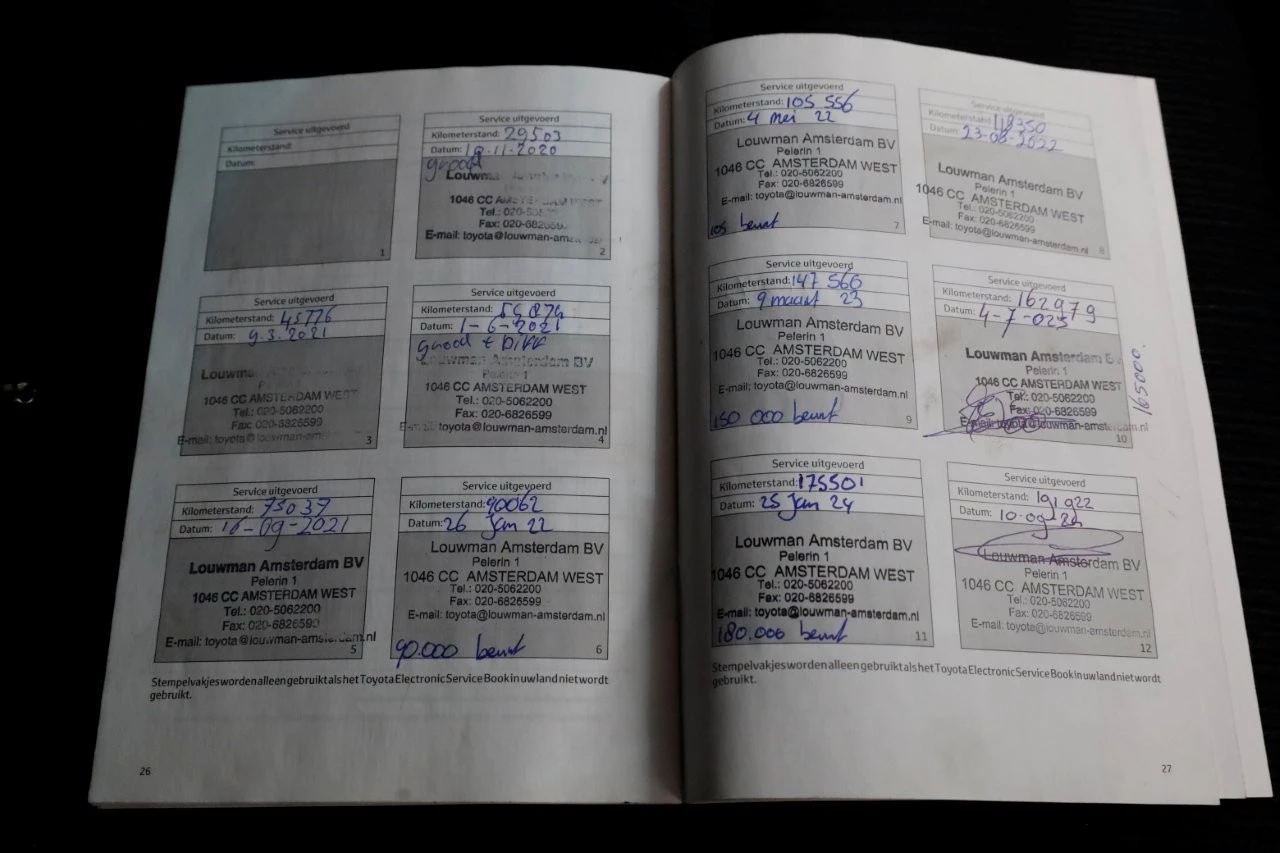 Service uitgevoerd
Kilometerstand:
Datum:
1
Service uitgevoerd
Kilometerstand: 29503
Datum: 18-11-2020
groot
Louwm
1046 CC AMSTERDAM WEST
Tel.: 020-506
Fax: 020-6826599
E-mail: toyota@louwman-ams
2
Service uitgevoerd
Kilometerstand: 45776
Datum: 9.3.2021
Louwm
1046 CC AMSTERDAM WEST
Tel.: 020-5062200
Fax: 020-6826599
E-mail: toyota@louwman-ams
3
Service uitgevoerd
Kilometerstand:
Datum: 1-6-2021
Louwman Amsterdam BV
Pelerin 1
1046 CC AMSTERDAM WEST
Tel.: 020-5062200
Fax: 020-6826599
E-m toyota@louwman-amsterdam.nl
4
Service uitgevoerd
Kilometerstand: 75037
Datum: 16-09-2021
Louwman Amsterdam BV
Pelerin 1
1046 CC AMSTERDAM WEST
Tel.: 020-5062200
Fax: 020-6826599
E-mail: toyota@louwman-amsterdam.nl
5
Service uitgevoerd
Kilometerstand: 90062
Datum: 26 Jan 22
Louwman Amsterdam BV
Pelerin 1
1046 CC AMSTERDAM WEST
Tel.: 020-5062200
Fax: 020-6826599
E-mail: toyota@louwman-amsterdam.nl
90.000 beurt
6
Stempelvakjes worden alleen gebruikt als het Toyota Electronic Service Book in uw land niet wordt
gebruikt.
26
Service uitgevoerd
Kilometerstand: 105 556
Datum: 4 mei 22
Louwman Amsterdam BV
Pelerin 1
1046 CC AMSTERDAM WEST
Tel.: 020-5062200
Fax: 020-6826599
E-mail: toyota@louwman-amsterdam.nl
105 beurt
7
Service uitgevoerd
Kilometerstand
Datum 23-08-2022
Louwman Amsterdam BV
Pelerin 1
1046 CC AMSTERDAM WEST
Tel.: 020-5062200
Fax: 020-6826599
E-mail: toyota@louwman-amsterdam.nl
8
Service uitgevoerd
Kilometerstand: 147 560
Datum: 9 maart 23
Louwman Amsterdam BV
Pelerin 1
1046 CC AMSTERDAM WEST
Tel.: 020-5062200
Fax: 020-6826599
E-mail: toyota@louwman-amsterdam.nl
150 000 beurt
9
Service uitgevoerd
Kilometerstand: 162979
Datum: 4-7-023
Louwman Amsterdam B
Pelerin 1
1046 CC AMSTERDAM WEST
Tel.: 020-5062200
Fax: 020-6826599
E-mail: toyota@louwman-amsterdam.nl
10
165000.
Service uitgevoerd
Kilometerstand: 175501
Datum: 25 Jan 24
Louwman Amsterdam BV
Pelerin 1
1046 CC AMSTERDAM WEST
Tel.: 020-5062200
Fax: 020-6826599
E-mail: toyota@louwman-amsterdam.nl
180.000 beurt
11
Service uitgevoerd
Kilometerstand: 191922
Datum: 10-09-24
Louwman Amsterdam BV
Pelerin 1
1046 CC AMSTERDAM WEST
Tel.: 020-5062200
Fax: 020-6826599
E-mail: toyota@louwman-amsterdam.nl
12
Stempelvakjes worden alleen gebruikt als het Toyota Electronic Service Book in uw land niet wordt
gebruikt.
27